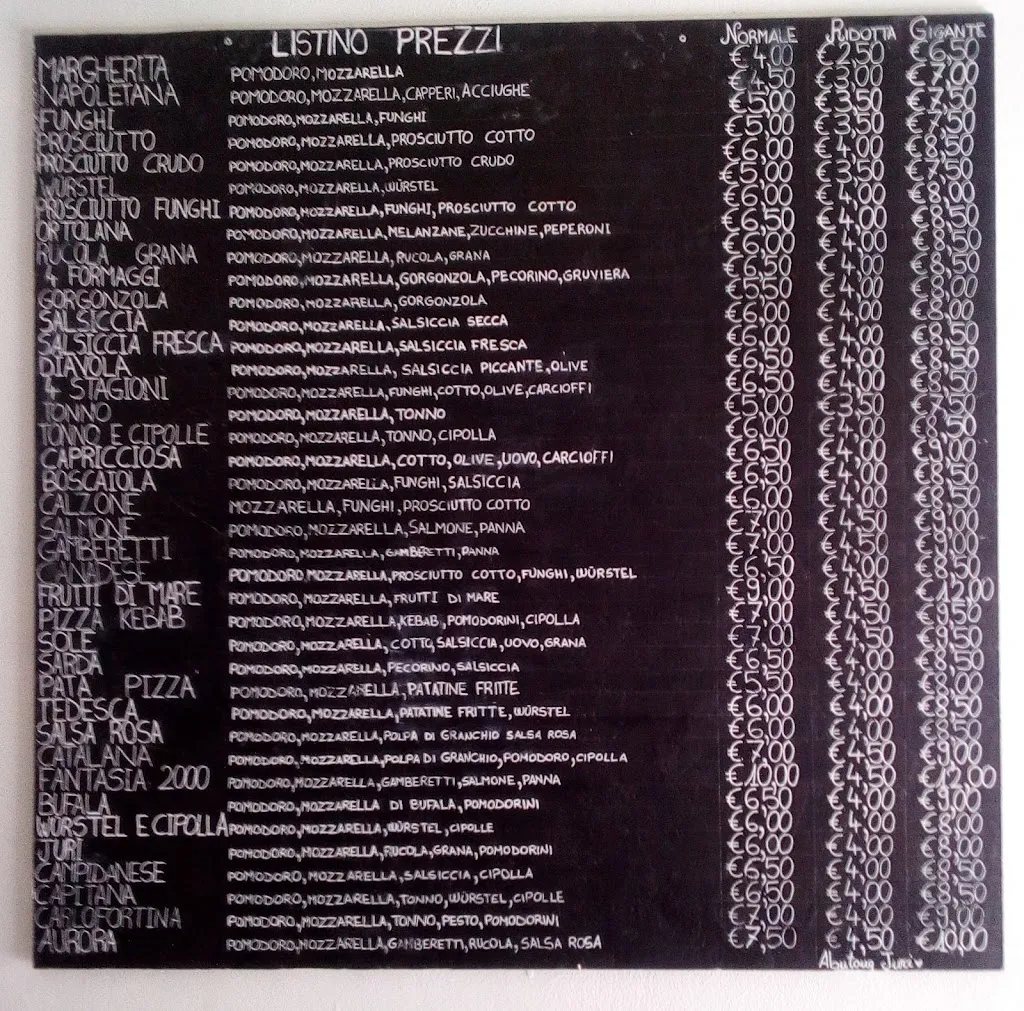 LISTINO PREZZI NORMALE RIDOTTA GIGANTE
MARGHERITA POMODORO,MOZZARELLA €4,00 €2,50 €6,50
NAPOLETANA POMODORO,MOZZARELLA,CAPPERI,ACCIUGHE €4,50 €3,00 €7,00
FUNGHI POMODORO,MOZZARELLA,FUNGHI €5,00 €3,50 €7,50
PROSCIUTTO POMODORO,MOZZARELLA,PROSCIUTTO COTTO €5,00 €3,50 €7,50
PROSCIUTTO CRUDO POMODORO,MOZZARELLA,PROSCIUTTO CRUDO €6,00 €4,00 €8,50
WÜRSTEL POMODORO,MOZZARELLA,WÜRSTEL €5,00 €3,50 €7,50
PROSCIUTTO FUNGHI POMODORO,MOZZARELLA,FUNGHI,PROSCIUTTO COTTO €6,00 €4,00 €8,00
ORTOLANA POMODORO,MOZZARELLA,MELANZANE,ZUCCHINE,PEPERONI €6,50 €4,00 €8,50
RUCOLA GRANA POMODORO,MOZZARELLA,RUCOLA,GRANA €6,00 €4,00 €8,00
4 FORMAGGI POMODORO,MOZZARELLA,GORGONZOLA,PECORINO,GRUVIERA €6,50 €4,00 €8,50
GORGONZOLA POMODORO,MOZZARELLA,GORGONZOLA €5,50 €4,00 €8,00
SALSICCIA POMODORO,MOZZARELLA,SALSICCIA SECCA €6,00 €4,00 €8,00
SALSICCIA FRESCA POMODORO,MOZZARELLA,SALSICCIA FRESCA €6,00 €4,00 €8,50
DIAVOLA POMODORO,MOZZARELLA, SALSICCIA PICCANTE,OLIVE €6,50 €4,00 €8,50
4 STAGIONI POMODORO,MOZZARELLA,FUNGHI,COTTO,OLIVE,CARCIOFFI €6,50 €4,00 €8,50
TONNO POMODORO,MOZZARELLA,TONNO €5,00 €3,50 €7,50
TONNO E CIPOLLE POMODORO,MOZZARELLA,TONNO,CIPOLLA €6,00 €4,00 €8,50
CAPRICCIOSA POMODORO,MOZZARELLA,COTTO,OLIVE,UOVO,CARCIOFFI €6,50 €4,00
BOSCAIOLA POMODORO,MOZZARELLA,FUNGHI,SALSICCIA €6,50 €4,00 €8,50
CALZONE MOZZARELLA,FUNGHI,PROSCIUTTO COTTO €6,00 €4,00 €8,50
SALMONE POMODORO,MOZZARELLA,SALMONE,PANNA €7,00 €4,50 €9,00
GAMBERETTI POMODORO,MOZZARELLA,GAMBERETTI,PANNA €7,00 €4,50 €9,00
CANADESE POMODORO,MOZZARELLA,PROSCIUTTO COTTO,FUNGHI,WÜRSTEL €6,50 €4,00 €8,50
FRUTTI DI MARE POMODORO,MOZZARELLA,FRUTTI DI MARE €9,00 €4,50 €12,00
PIZZA KEBAB POMODORO,MOZZARELLA,KEBAB,POMODORINI,CIPOLLA €7,00 €4,50 €9,50
SOLE POMODORO,MOZZARELLA,COTTO,SALSICCIA,UOVO,GRANA €7,00 €4,50 €9,50
SARDA POMODORO,MOZZARELLA,PECORINO,SALSICCIA €6,50 €4,00
PATA PIZZA POMODORO,MOZZARELLA,PATATINE FRITTE €5,50 €4,00 €8,00
TEDESCA POMODORO,MOZZARELLA,PATATINE FRITTE,WÜRSTEL €6,00 €4,00 €8,50
SALSA ROSA POMODORO,MOZZARELLA,POLPA DI GRANCHIO SALSA ROSA €6,00 €4,00 €8,50
CATALANA POMODORO,MOZZARELLA,POLPA DI GRANCHIO,POMODORO,CIPOLLA €7,00 €4,50 €9,00
FANTASIA 2000 POMODORO,MOZZARELLA,GAMBERETTI,SALMONE,PANNA €10,00 €4,50 €12,00
BUFALA POMODORO,MOZZARELLA DI BUFALA,POMODORINI €6,50 €4,00 €9,00
WÜRSTEL E CIPOLLA POMODORO,MOZZARELLA,WÜRSTEL,CIPOLLE €6,00 €4,00 €8,00
JURI POMODORO,MOZZARELLA,RUCOLA,GRANA,POMODORINI €6,00 €4,00 €8,00
CAMPIDANESE POMODORO,MOZZARELLA,SALSICCIA,CIPOLLA €6,50 €4,00 €8,50
CAPITANA POMODORO,MOZZARELLA,TONNO,WÜRSTEL,CIPOLLE €6,50 €4,00 €8,50
CARLOFORTINA POMODORO,MOZZARELLA,TONNO,PESTO,POMODORINI €7,00 €4,00 €9,00
AURORA POMODORO,MOZZARELLA,GAMBERETTI,RUCOLA,SALSA ROSA €7,50 €4,50 €10,00
Juri